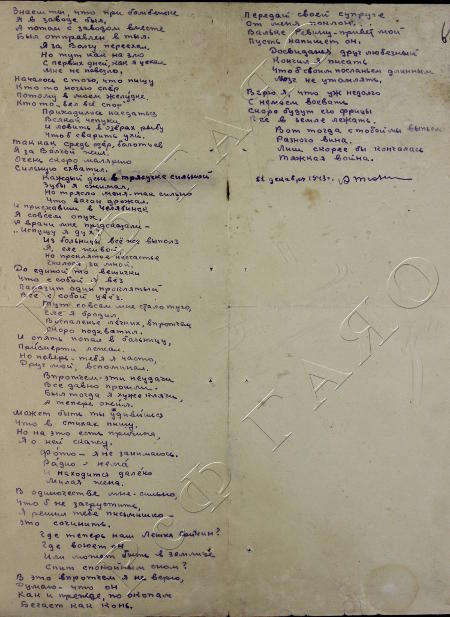 Знаешь ты, что при бомбежке
Я в заводе был,
А потом с заводом вместе
Был отправлен в тыл.
Я за Волгу переехал,
Но тут как на зло
С первых дней, как я уехал
Мне не повезло,
Началось с того, что пищу
Кто-то ночью спёр
Потому в моем желудке,
Кто-то вел всё спор
Приходилось наедаться
Всякой чепухи
И ловить в озёрах рыбу
Чтоб сварить ухи,
Так как средь озёр, болотьев
Я за Волгой жил.
Очень скоро малярию
Сильную схватил.
Каждый день в трясучке сильной
Зубы я сжимал,
Но трясло меня так сильно
Что вагон дрожал.
И приехавши в Челябинск
Я совсем опух,
А врачи мне предсказали-
Испущу я дух.
Из больницы всё же выполз
Я, еле живой
Но проклятое несчастье
за мной.
До единой то вещички
Что с собой я вёз
Паразит один проклятый
Все с собой увёз.
Тут совсем мне стало туго,
Еле я бродил,
Воспаленье лёгких, впрочем
Скоро подхватил.
И опять попал в больницу,
При смерти лежал.
Но поверь-тебя я часто,
Друг мой, вспоминал.
Впрочем-эти неудачи
Все давно прошли.
Был тогда я хуже клячи,
А теперь ожил.
Может быть ты удивишься
Что в стихах пишу,
Но на это есть причина,
Я о ней скажу.
Фото-я не занимаюсь.
Радио-нема
И находится далёко
Милая жена.
В одиночестве мне-сильно,
Чтоб не загрустить,
Я решил тебе письмишко-
Это сочинить.
Где теперь наш Лешка
Где воюет он
Или может быть в землице
Спит спокойным сном?
В это впротчем я не верю,
Думаю-что он
Как и прежде, по окопам
Бегает как конь.
Передай своей супруге
От меня поклон...
Вальке привет мой
Пусть напишет он.
Досвиданья друг любезный
Кончил я писать
Чтоб своим посланьем длинным
не утомлять.
Верю я, что уж недолго
С немцем воевать
Скоро будут его фрицы
Все в земле лежать.
Вот тогда с тобой мы выпьем
Разного вина.
Лишь скорее бы кончалась
Тяжкая война.
декабря 1943г.